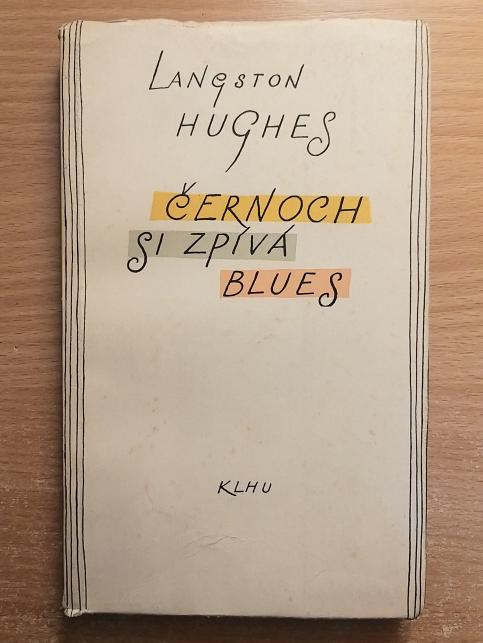 LANGSTON
HUGHES
ČERNOCH
SI ZPÍVÁ
BLUES
KLHU